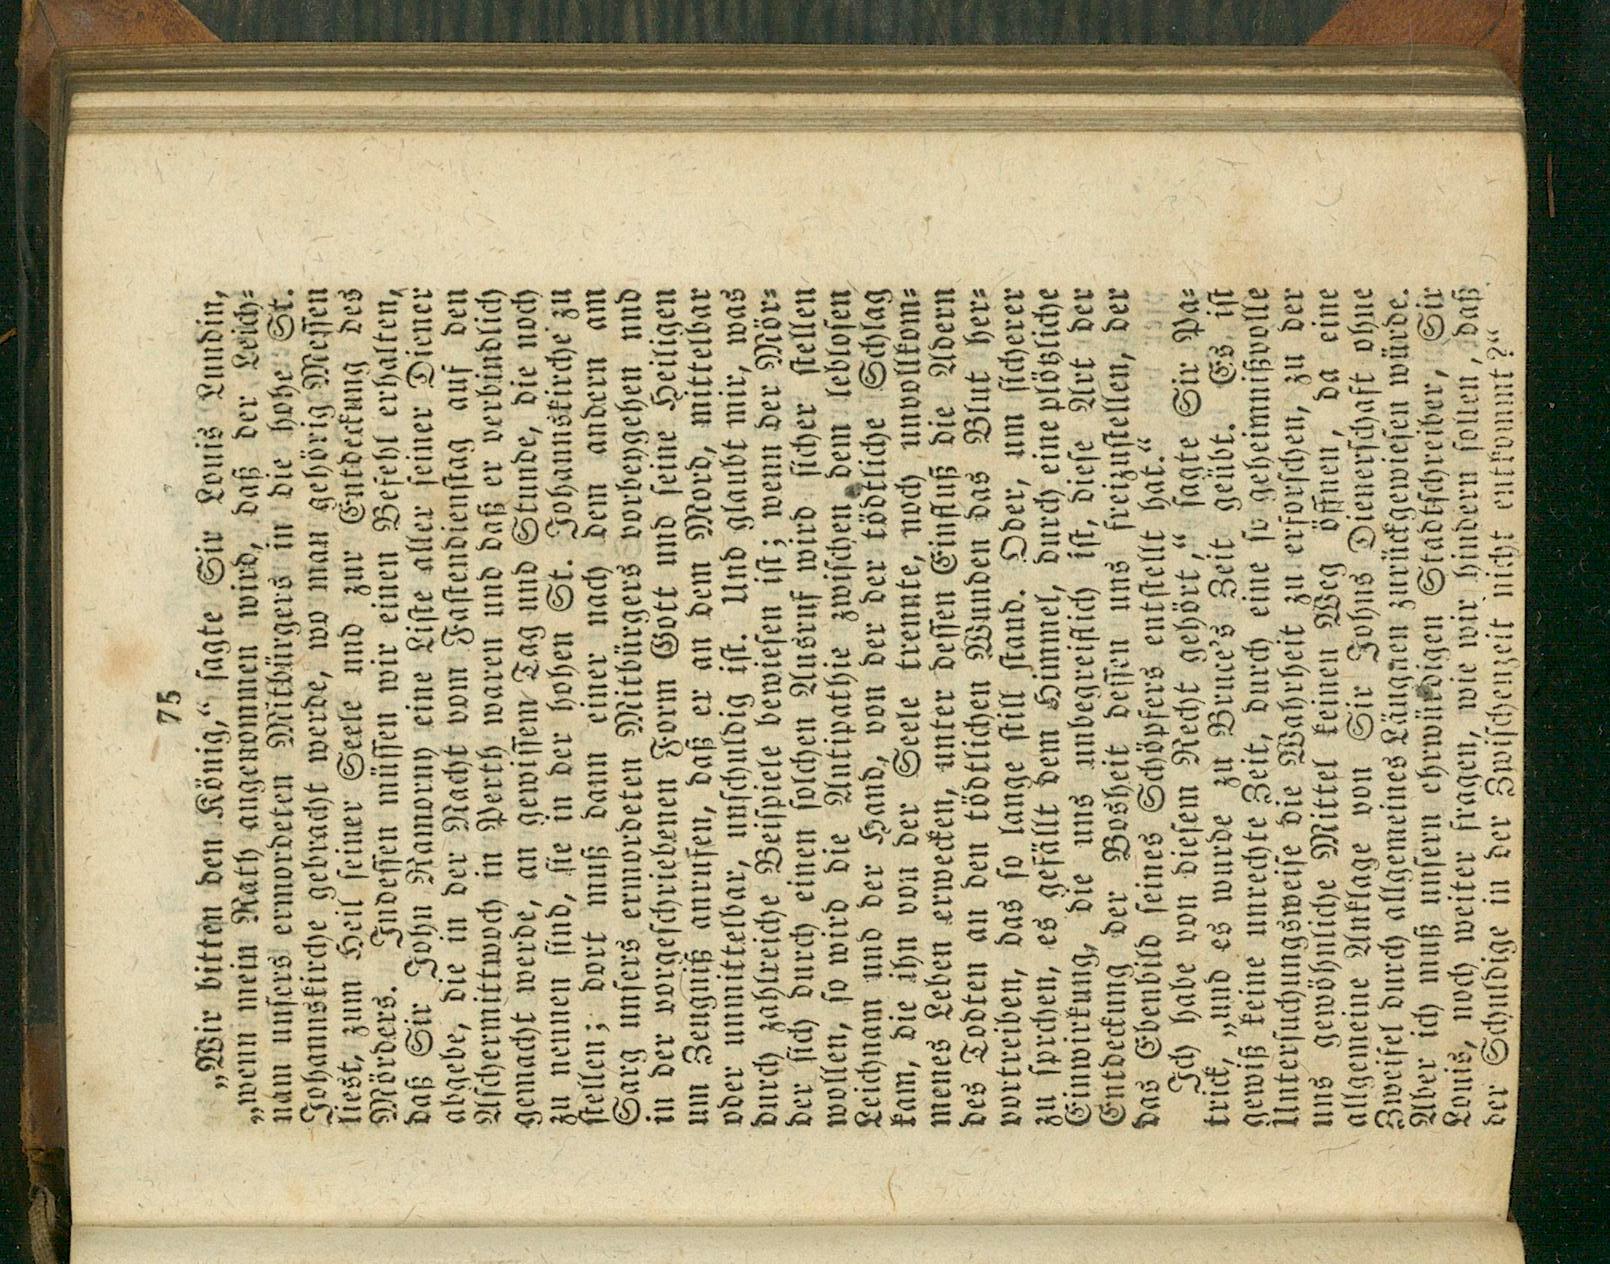 75
„Wir bitten den König,“ sagte Sir Louis Lundin,
„wenn mein Rath angenommen wird, daß der Leich-
nam unsers ermordeten Mitbürgers in die hohe St.
Johannskirche gebracht werde, wo man gehörig Messen
liest, zum Heil seiner Seele und zur Entdeckung des
Mörders. Indessen müssen wir einen Befehl erhalten,
daß Sir John Ramorny eine Liste aller seiner Diener
abgebe, die in der Nacht vom Fastendienstag auf den
Aschermittwoch in Perth waren und daß er verbindlich
gemacht werde, an gewissem Tag und Stunde, die noch
zu nennen sind, sie in der hohen St. Johannskirche zu
stellen; dort muß dann einer nach dem andern am
Sarg unsers ermordeten Mitbürgers vorbeygehen und
in der vorgeschriebenen Form Gott und seine Heiligen
um Zeugniß anrufen, daß er an dem Mord, mittelbar
oder unmittelbar, unschuldig ist. Und glaubt mir, was
durch zahlreiche Beispiele bewiesen ist; wenn der Mör-
der sich durch einen solchen Ausruf wird sicher stellen
wollen, so wird die Antipathie zwischen dem leblosen
Leichnam und der Hand, von der der tödtliche Schlag
kam, die ihn von der Seele trennte, noch unvollkom-
menes Leben erwecken, unter dessen Einfluß die Adern
des Todten an den tödtlichen Wunden das Blut her-
vortreiben, das so lange still stand. Oder, um sicherer
zu sprchen, es gefällt dem Himmel, durch eine plötzliche
Einwirkung, die uns unbegreiflich ist, diese Art der
Entdeckung der Bosheit dessen uns freizustellen, der
das Ebenbild seines Schöpfers entstellt hat.“
Ich habe von diesem Recht gehört,“ sagte Sir Pa-
trick, „und es wurde zu Bruce's Zeit geübt. Es ist
gewiß keine unrechte Zeit, durch eine so geheimnißvolle
Untersuchungsweise die Wahrheit zu erforschen, zu der
uns gewöhnliche Mittel keinen Weg öffnen, da eine
allgemeine Anklage von Sir Johns Dienerschaft ohne
Zweifel durch allgemeines Läugnen zurückgewiesen würde.
Aber ich muß unsern ehrwürdigen Stadtschreiber, Sir
Louis, noch weiter fragen, wie wir hindern sollen, daß
der Schuldige in der Zwischenzeit nicht entkommt?“